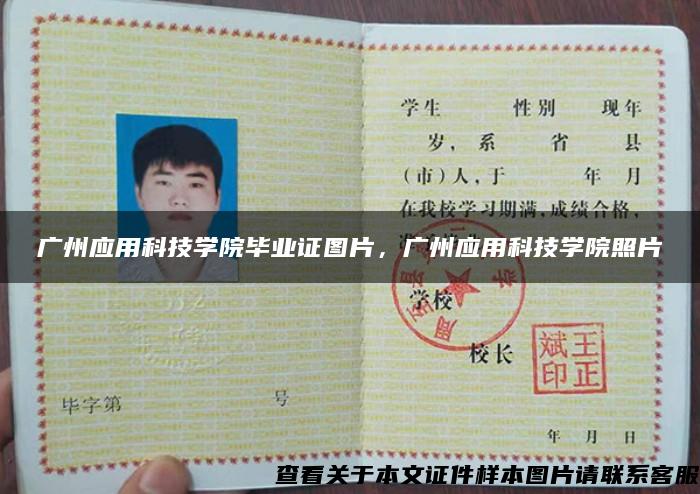 学生 性别 现年
岁，系 省 县
（市）人，于 年 月
在我校学习期满，成绩合格，
广州应用科技学院毕业证图片，广州应用科技学院照片
学校
校长
王正
斌印
毕字第 号
年 月 日
查看关于本文证件样本图片请联系客服